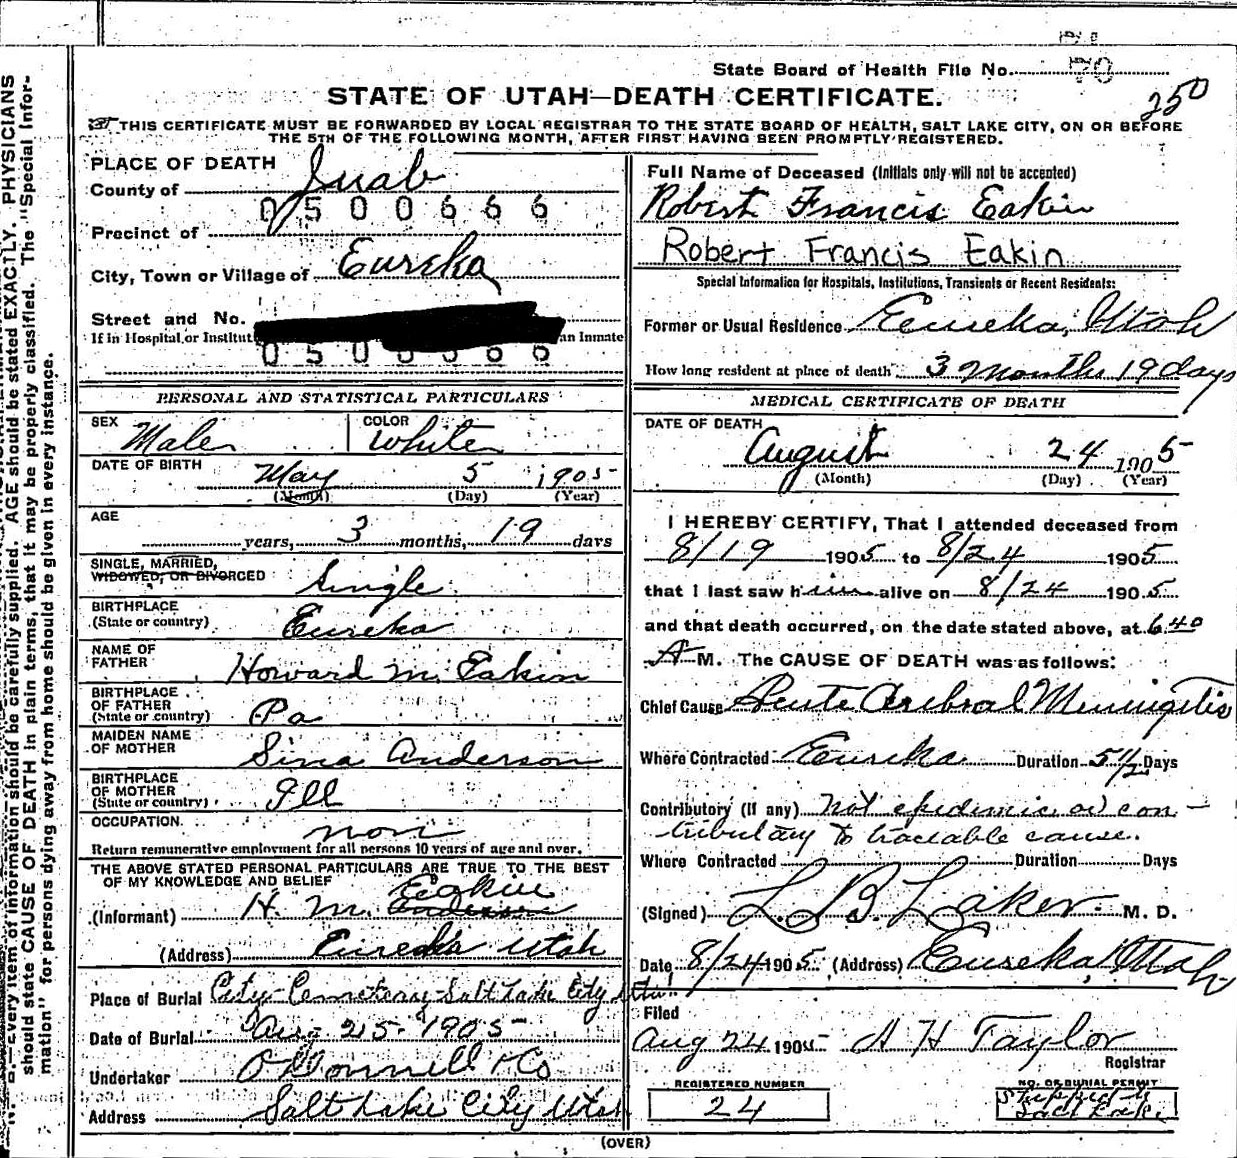 State Board of Health File No. 70
250
STATE OF UTAH—DEATH CERTIFICATE.
THIS CERTIFICATE MUST BE FORWARDED BY LOCAL REGISTRAR TO THE STATE BOARD OF HEALTH, SALT LAKE CITY, ON OR BEFORE
THE 5TH OF THE FOLLOWING MONTH, AFTER FIRST HAVING BEEN PROMPTLY REGISTERED.
PLACE OF DEATH
County of Juab
0500666
Precinct of
City, Town or Village of Eureka
Street and No.
If in Hospital or Institut an Inmate
PERSONAL AND STATISTICAL PARTICULARS
SEX Male COLOR White
DATE OF BIRTH May 5 1905
(Month) (Day) (Year)
AGE years, 3 months, 19 days
SINGLE, MARRIED,
WIDOWED, OR DIVORCED Single
BIRTHPLACE
(State or country) Eureka
NAME OF
FATHER Howard M. Eakin
BIRTHPLACE
OF FATHER
(State or country) Pa
MAIDEN NAME
OF MOTHER Sina Anderson
BIRTHPLACE
OF MOTHER
(State or country) Ill
OCCUPATION non
Return remunerative employment for all persons 10 years of age and over.
THE ABOVE STATED PERSONAL PARTICULARS ARE TRUE TO THE BEST
OF MY KNOWLEDGE AND BELIEF
(Informant) H. M. Anderson Eakin
(Address) Eureka Utah
Place of Burial City Cemetery Salt Lake City Utah
Date of Burial Aug 25 1905
Undertaker O'Donnell & Co
Address Salt Lake City Utah
Full Name of Deceased (Initials only will not be accepted)
Robert Francis Eakin
Robert Francis Eakin
Special Information for Hospitals, Institutions, Transients or Recent Residents:
Former or Usual Residence Eureka, Utah
How long resident at place of death 3 Months 19 days
MEDICAL CERTIFICATE OF DEATH
DATE OF DEATH
August 24 1905
(Month) (Day) (Year)
I HEREBY CERTIFY, That I attended deceased from
8/19 1905 to 8/24 1905
that I last saw him alive on 8/24 1905
and that death occurred, on the date stated above, at 6 40
A M. The CAUSE OF DEATH was as follows:
Chief Cause Acute Cerebral Meningitis
Where Contracted Eureka Duration 5 1/2 Days
Contributory (if any) not epidemic or con-
tributary to traceable cause.
Where Contracted Duration Days
(Signed) L. B. Laker M. D.
Date 8/24 1905 (Address) Eureka Utah
Filed
Aug 24 1905 A H Taylor
Registrar
REGISTERED NUMBER
24
NO. OF BURIAL PERMIT
Shipped to
Salt Lake
(OVER)
N. B.—Every item of information should be carefully supplied. AGE should be stated EXACTLY. PHYSICIANS
should state CAUSE OF DEATH in plain terms, that it may be properly classified. The "Special Infor-
mation" for persons dying away from home should be given in every instance.